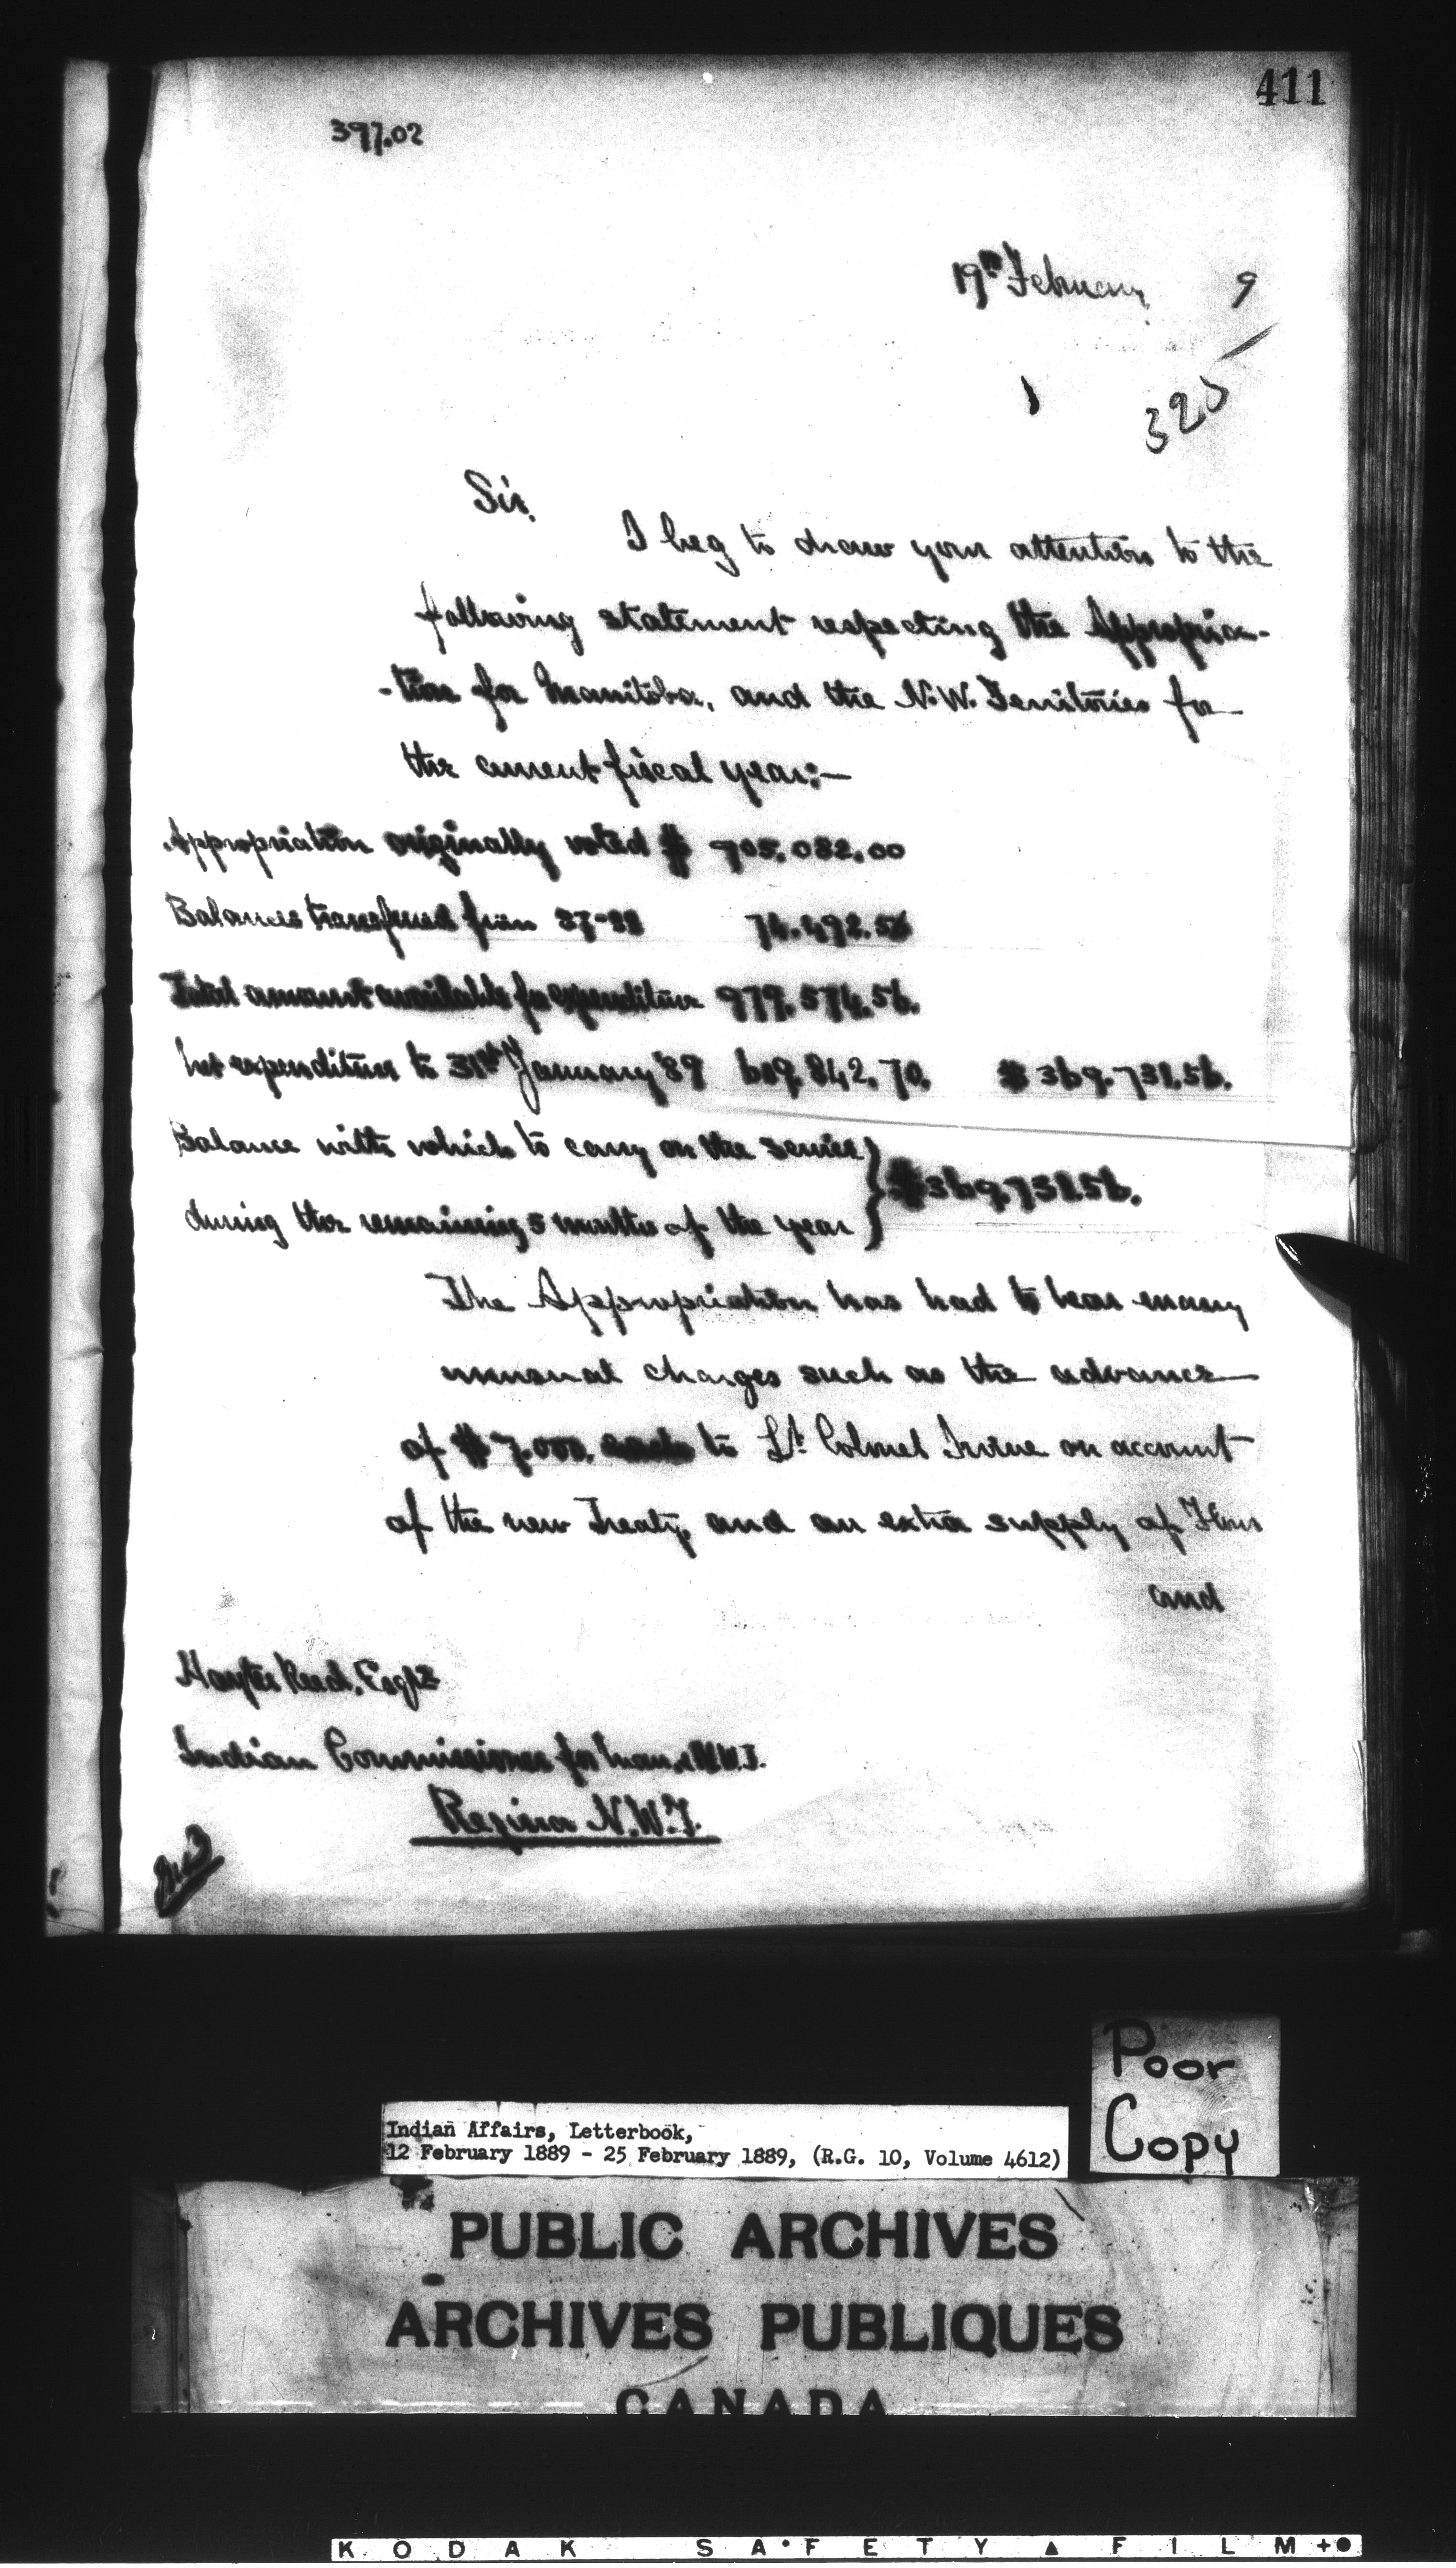 411
397.02
19th February 9
320
Sir,
I beg to draw your attention to the
following statement respecting the Appropria-
-tion for Manitoba, and the N.W. Territories for
the current fiscal year:—
Appropriation originally voted $ 905.082.00
Balances transferred from 87-88 74.492.56
Total amount available for expenditure 979.574.56.
Net expenditure to 31st January '89 609.842.70. $369.731.56.
Balance with which to carry on the service
during the remaining 5 months of the year } $369.731.56.
The Appropriation has had to bear many
unusual charges such as the advance
of $7.000. to Lt. Colonel Irvine on account
of the new Treaty, and an extra supply of Flour
and
Hayter Reed, Esqre
Indian Commissioner for Man. & N.W.T.
Regina N.W.T.
Poor
Copy
Indian Affairs, Letterbook,
12 February 1889 - 25 February 1889, (R.G. 10, Volume 4612)
PUBLIC ARCHIVES
ARCHIVES PUBLIQUES
CANADA
KODAK SAFETY FILM